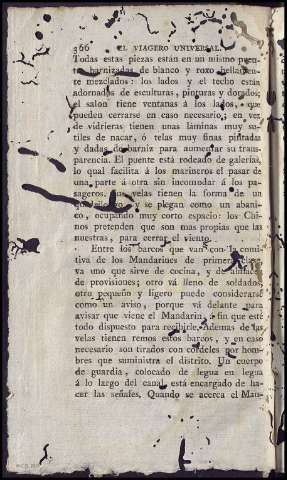 366 EL VIAGERO UNIVERSAL.
Todas estas piezas están en un mismo
barnizadas de blanco y roxo
te mezclados: los lados y el techo están
adornados de esculturas, pinturas y dorados;
el salon tiene ventanas á los lados, que
pueden cerrarse en caso necesario; en vez
de vidrieras tienen unas láminas muy su-
tiles de nacar, ó telas muy finas pintadas
y dadas de barniz para aumentar su trans-
parencia. El puente está rodeado de galerías,
lo qual facilita á los marineros el pasar de
una parte á otra sin incomodar á los pa-
sageros. Las velas tienen la forma de un
y se plegan como un abani-
co, ocupando muy corto espacio: los Chi-
nos pretenden que son mas propias que las
nuestras, para cerrar el viento.
Entre los barcos que van con la comi-
tiva de los Mandarines de primera clase,
va uno que sirve de cocina, y de
de provisiones; otro vá lleno de soldados,
otro pequeño y ligero puede considerarse
como un aviso, porque vá delante para
avisar que viene el Mandarin, á fin que esté
todo dispuesto para recibirle. Ademas de las
velas tienen remos estos barcos, y en caso
necesario son tirados con cordeles por hom-
bres que suministra el distrito. Un cuerpo
de guardia, colocado de legua en legua
á lo largo del canal, está encargado de ha-
cer las señales. Quando se acerca el Man-